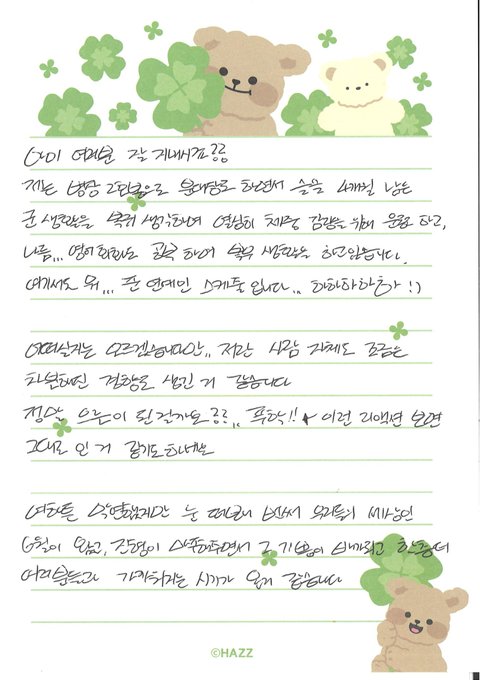 아미 여러분 잘 지내시죠??
저는 병장 2호봉으로 분대장도 하면서 슬슬 4개월 남은
군 생활을 생각하며 열심히 체중 감량을 위해 운동도 하고,
나름... 영어 회화도 공부 하며 생활을 하고있습니다.
여기서도 뭐... 준 연예인 스케쥴 입니다.. 하하하하하 :)
어떠실지는 모르겠습니다만.. 저란 사람 자체도 조금은
차분해진 경향도 생긴 거 같습니다
정말 으른이 된걸까요??.. 푸핫!! 이런 리액션 보면
그대로 인 거 같기도하네요
여하튼 막연했지만 눈 떠보니 벌써 우리들의 세상인
6월이 왔고, 진형이 그 기분이 바뀌고 한층더
여러분들과 가까워지는 시기가 온거 같습니다
©HAZZ